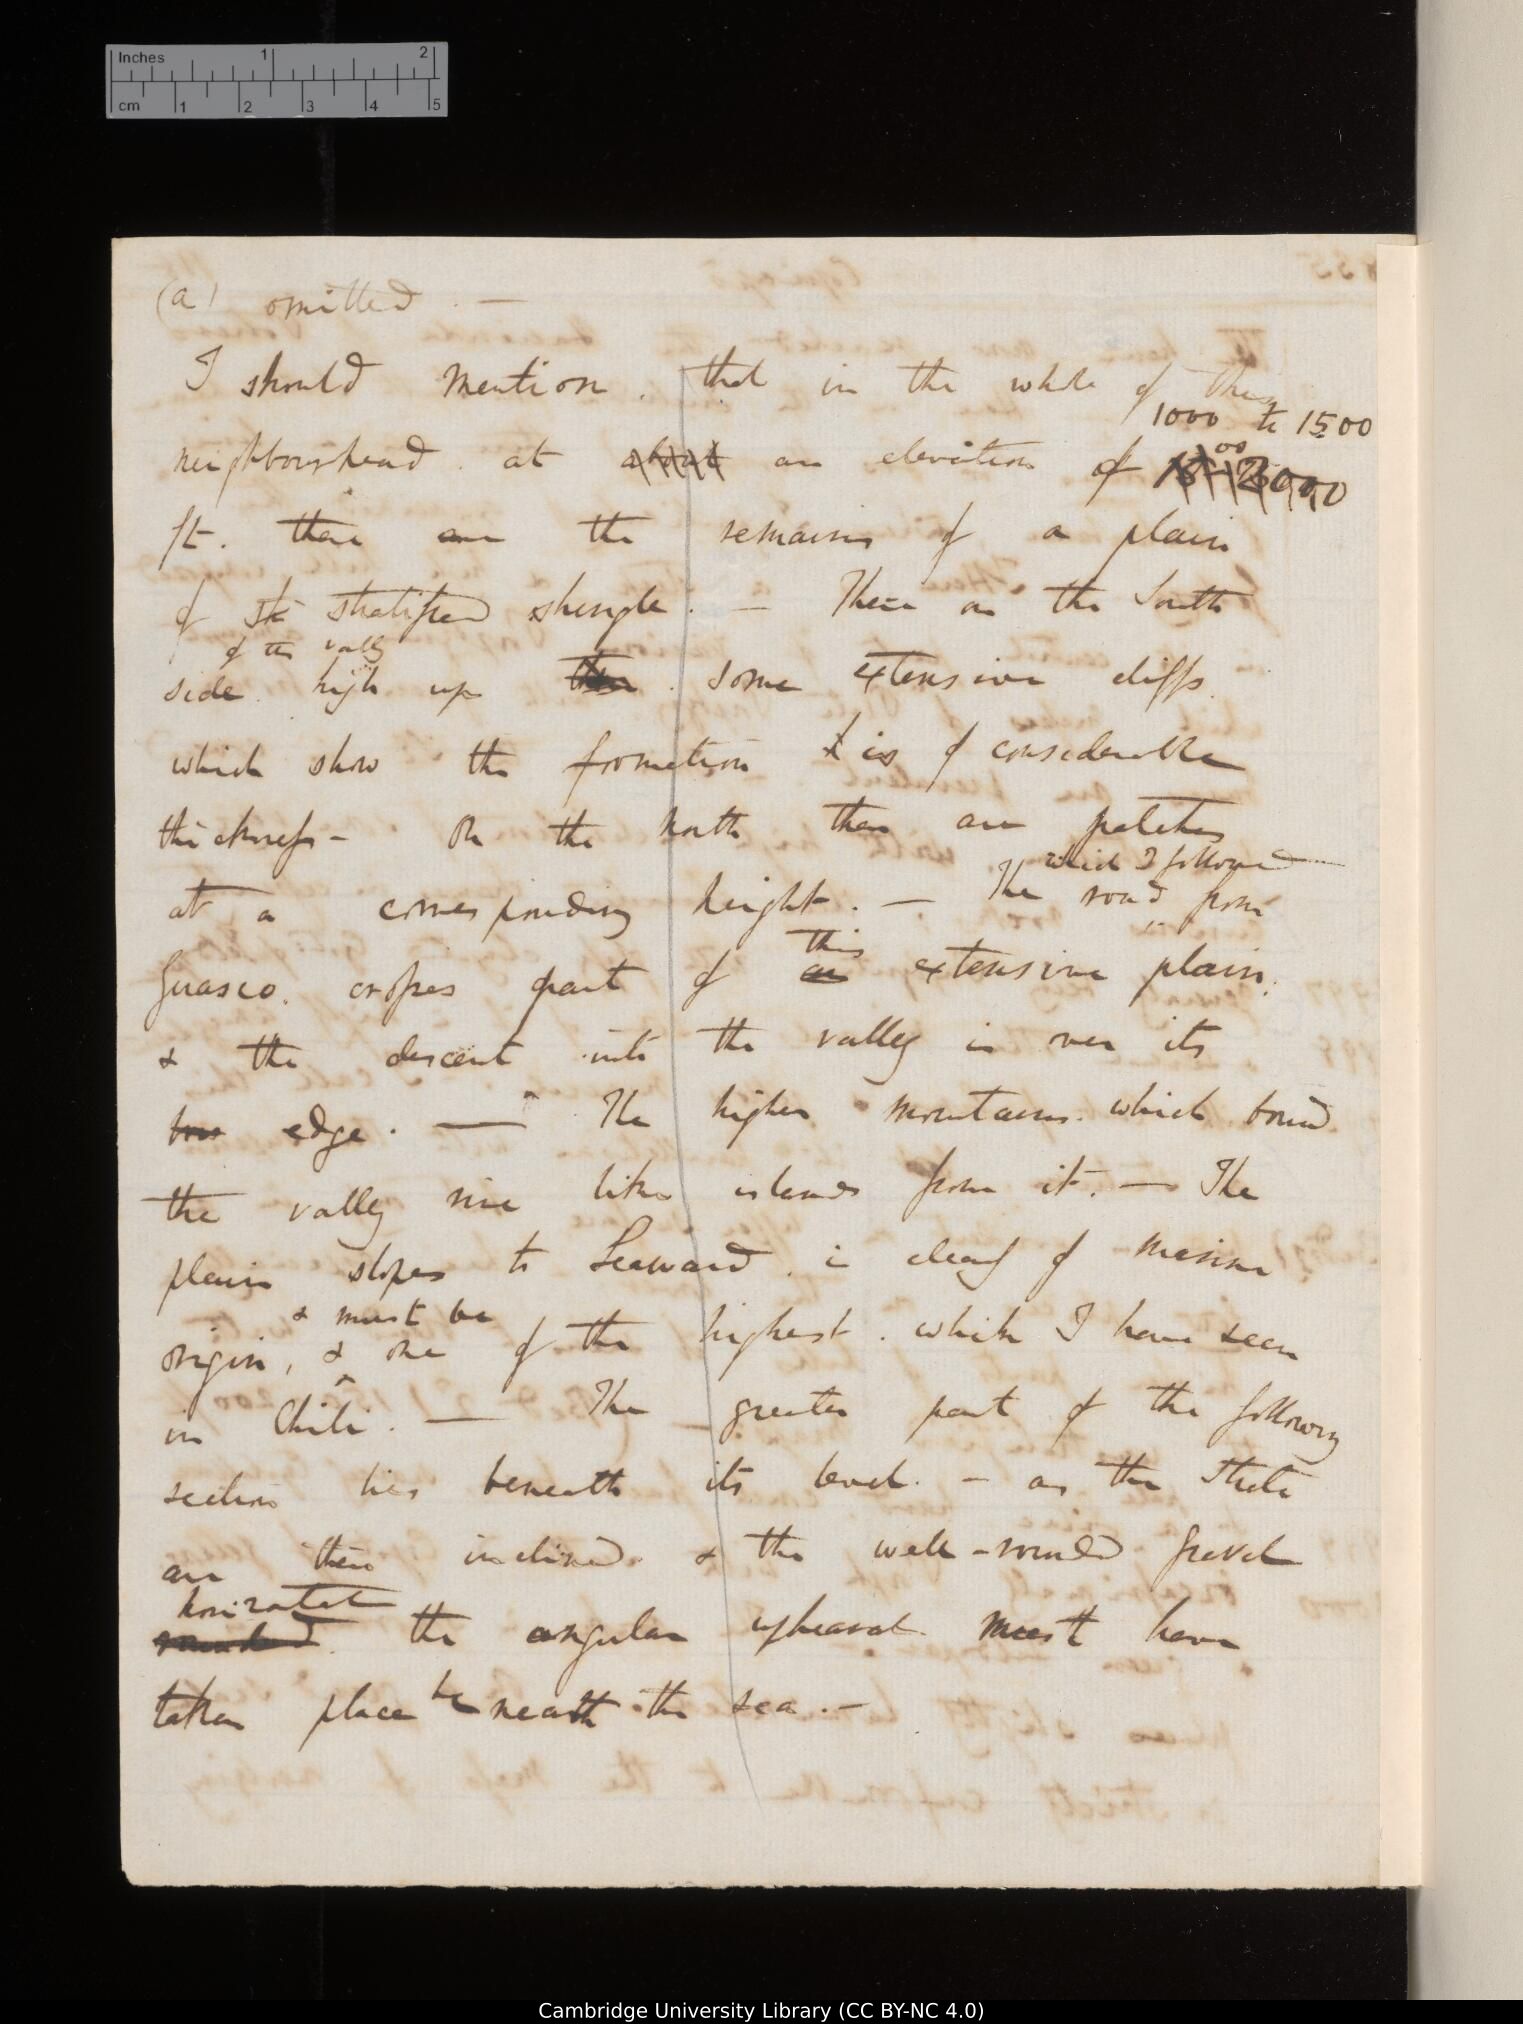 Inches 1 2
cm 1 2 3 4 5
(a) omitted. —
I should mention, that in the whole of this
1000 to 1500
neighbourhead at about an elevation of
ft. there are the remains of a plain
of St stratified shingle. — There on the South
of the vally
side high up some extensive cliffs
which show the fromation is of considerable
thickness — On the north there are patches
which I followed
at a corresponding height. — The road from
this
Guasco. crosses part of an extensive plain,
& the descent into the valley is over its
edge. — The higher mountains which bound
the valley rise like islands from it. — The
plain slopes to Seaward, is clearly of marine
& must be
origin, & one of the highest which I have seen
in Chili. — The greater part of the following
section lies beneath its level. — as the Strata
are there inclined & the well-rounded gravel
horizontal
rounded the angular upheaval must have
taken place beneath the sea. —
Cambridge University Library (CC BY-NC 4.0)